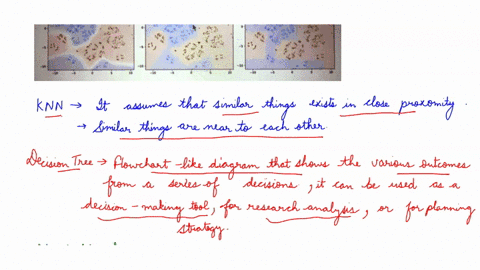 KNN → It assumes that similar things exists in close proximity.
→ Similar things are near to each other.
Decision Tree → Flowchart-like diagram that shows the various outcomes
from a series of decisions, it can be used as a
decision-making tool, for research analysis, or for planning
strategy.